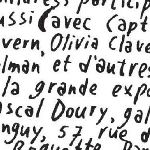 particip
ussi (avec Capt
vern, Olivia Clave
lman, et d'autres
la grande expo
ascal Doury, gal
nguy, 57, rue d